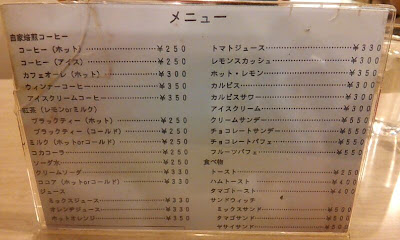 メニュー
自家焙煎コーヒー
コーヒー（ホット）……¥250
コーヒー（アイス）……¥250
カフェオーレ（ホット）……¥300
ウィンナーコーヒー……¥350
アイスクリームコーヒー……¥350
紅茶（レモンorミルク）
ブラックティー（ホット）……¥250
ブラックティー（コールド）……¥250
ミルク（ホットorコールド）……¥250
コカコーラ……¥250
ソーダ水……¥250
クリームソーダ……¥330
ココア（ホットorコールド）……¥330
ジュース
ミックスジュース……¥330
オレンヂジュース……¥330
ホットオレンジ……¥350
トマトジュース……¥330
レモンスカッシュ……¥350
ホット・レモン……¥350
カルピス……¥300
カルピスサワー……¥350
アイスクリーム……¥300
クリームサンデー……¥550
チョコレートサンデー……¥550
チョコレートパフェ……¥550
フルーツパフェ……¥550
食べ物
トースト
ハムトースト……¥400
タマゴトースト……¥400
サンドウィッチ
ミックスサンド……¥550
タマゴサンド
ヤサイサンド